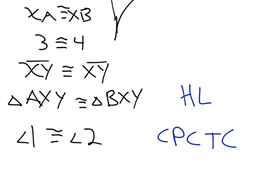 XA ≅ XB
3 ≅ 4
XY ≅ XY
△AXY ≅ △BXY HL
∠1 ≅ ∠2 CPCTC